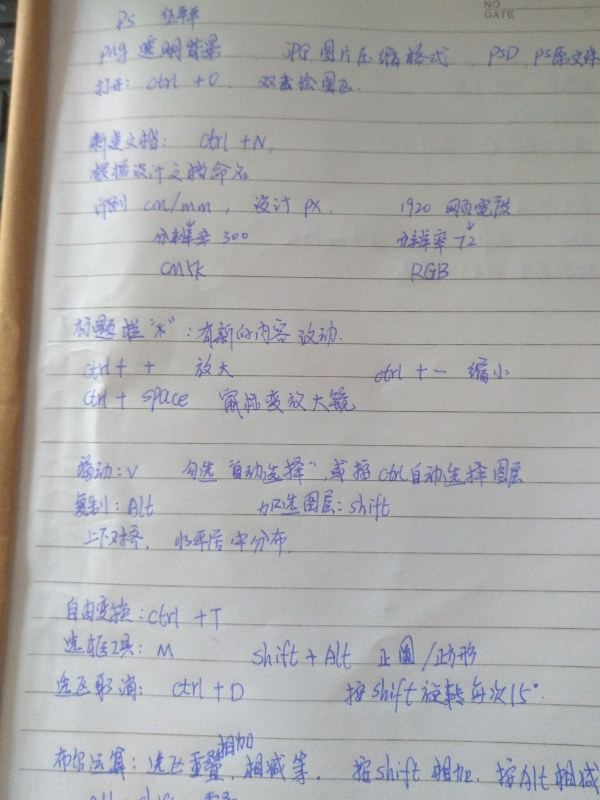 NO
DATE
PS
png 透明背景 JPG 图片压缩格式 PSD PS原文件
打开: ctrl + O 双击绘图区
新建文档: ctrl + N,
根据设计文档命名
印刷 cm/mm, 设计 px. 1920 网页宽度
分辨率 300 分辨率 72
CMYK RGB
标题栏"*": 有新的内容改动.
ctrl + + 放大 ctrl + - 缩小
ctrl + space 鼠标变放大镜
移动: V 勾选"自动选择", 或按ctrl自动选择图层
复制: Alt 加选图层: shift
上下对齐, 水平居中分布.
自由变换: ctrl + T
选框工具: M shift + Alt 正圆/正方形
选区取消: ctrl + D 按shift旋转每次15°.
布尔运算: 选区重叠, 相加, 相减等. 按shift 相加. 按Alt 相减